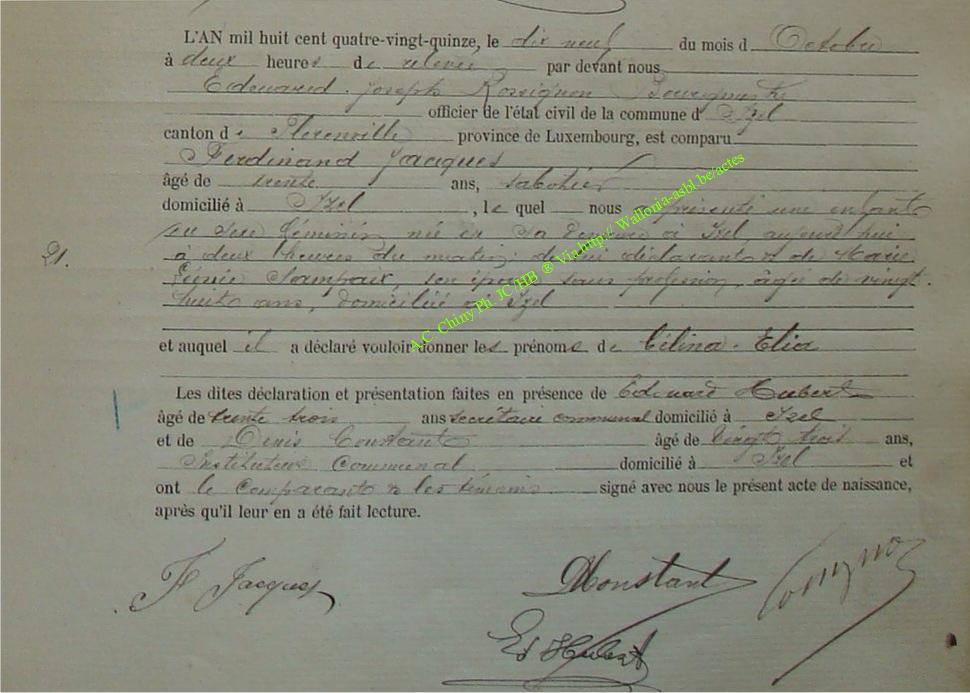 L'AN mil huit cent quatre-vingt-quinze, le dix neuf du mois d Octobre
à deux heures de relevée par devant nous
Edouard Joseph Rossignon Bourgmestre
officier de l'état civil de la commune d' Izel
canton de Florenville province de Luxembourg, est comparu
Ferdinand Jacques
âgé de trente ans, sabotier
domicilié à Izel, le quel nous a présenté une enfant
du sexe féminin née en sa demeure à Izel aujourd'hui
21.
à deux heures du matin, de lui déclarant & de Marie
son épouse sans profession, âgée de vingt
huit ans, domiciliée à Izel
et auquel il a déclaré vouloir donner les prénoms de Célina - Elia
Les dites déclaration et présentation faites en présence de Edouard Hubert
âgé de trente trois ans secrétaire communal domicilié à Izel
et de Denis Constant âgé de vingt trois ans,
Instituteur Communal domicilié à Izel et
ont le comparant & les témoins signé avec nous le présent acte de naissance,
après qu'il leur en a été fait lecture.
A.C. Chiny Ph. JC HB ® Via http:// Wallonia-asbl.be/actes
F Jacques
DConstant
Ed Hubert